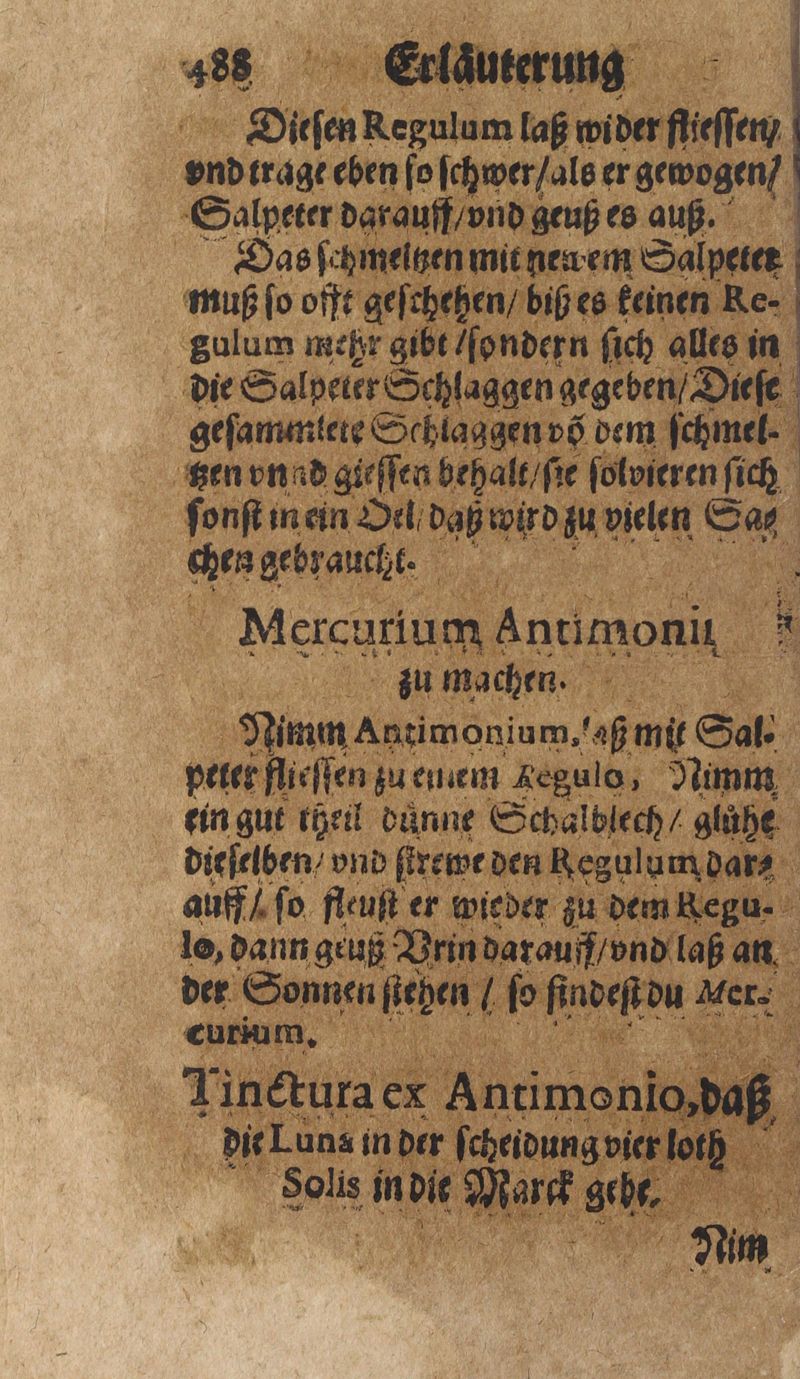 488 Erläuterung
Dieſen Regulum laß wider flieſſen/
vnd trage eben ſo ſchwer/als er gewogen/
Salpeter darauff/vnd geuß es auß.
Das ſchmeltzen mit newem Salpeter
muß ſo offt geſchehen/ biß es keinen Re-
gulum mehr gibt/ſondern ſich alles in
die Salpeter Schlaggen gegeben/Dieſe
geſammlete Schlaggen võ dem ſchmel-
tzen vnnd gieſſen behalt/ſie ſolvieren ſich
ſonſt in ein Oel/ daß wird zu vielen Sa-
chen gebraucht.
Mercurium Antimonii
zu machen.
Nimm Antimonium, laß mit Sal-
peter flieſſen zu einem Regulo, Nimm
ein gut theil dünne Schalblech/ glühe
dieſelben/ vnd ſtrewe den Regulum dar-
auff/ ſo fleuſt er wieder zu dem Regu-
lo, dann geuß Vrin darauff/vnd laß an
der Sonnen ſtehen / ſo findeſt du Mer-
curium.
Tinctura ex Antimonio, daß
die Luna in der ſcheidung vier loth
Solis in die Marck gebe.
Nim